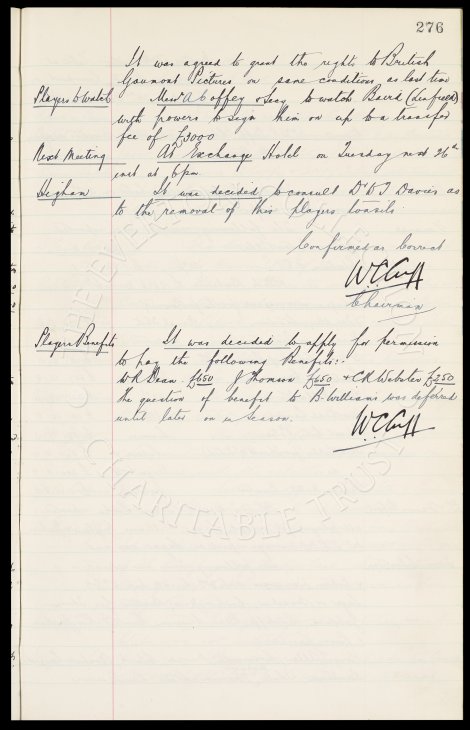 276
It was agreed to grant the rights to British
Gaumont Pictures on same conditions as last time
Players to Watch Messrs A Coffey & Secy to watch Baird (Linfield)
with powers to sign him on up to a transfer
fee of £3000
Next Meeting At Exchange Hotel on Tuesday next 26th
inst at 6pm.
Higham It was decided to consult Dr D J Davies as
to the removal of this players tonsils
Confirmed as Correct
W.C. Cuff
Chairman
Players Benefits It was decided to apply for permission
to pay the following Benefits:-
W R Dean. £650 J Thomson £650 & C R Webster £250
The question of benefit to B. Williams was deferred
until later on in Season.
W.C. Cuff
THE EVERTON
CHARITABLE TRUST